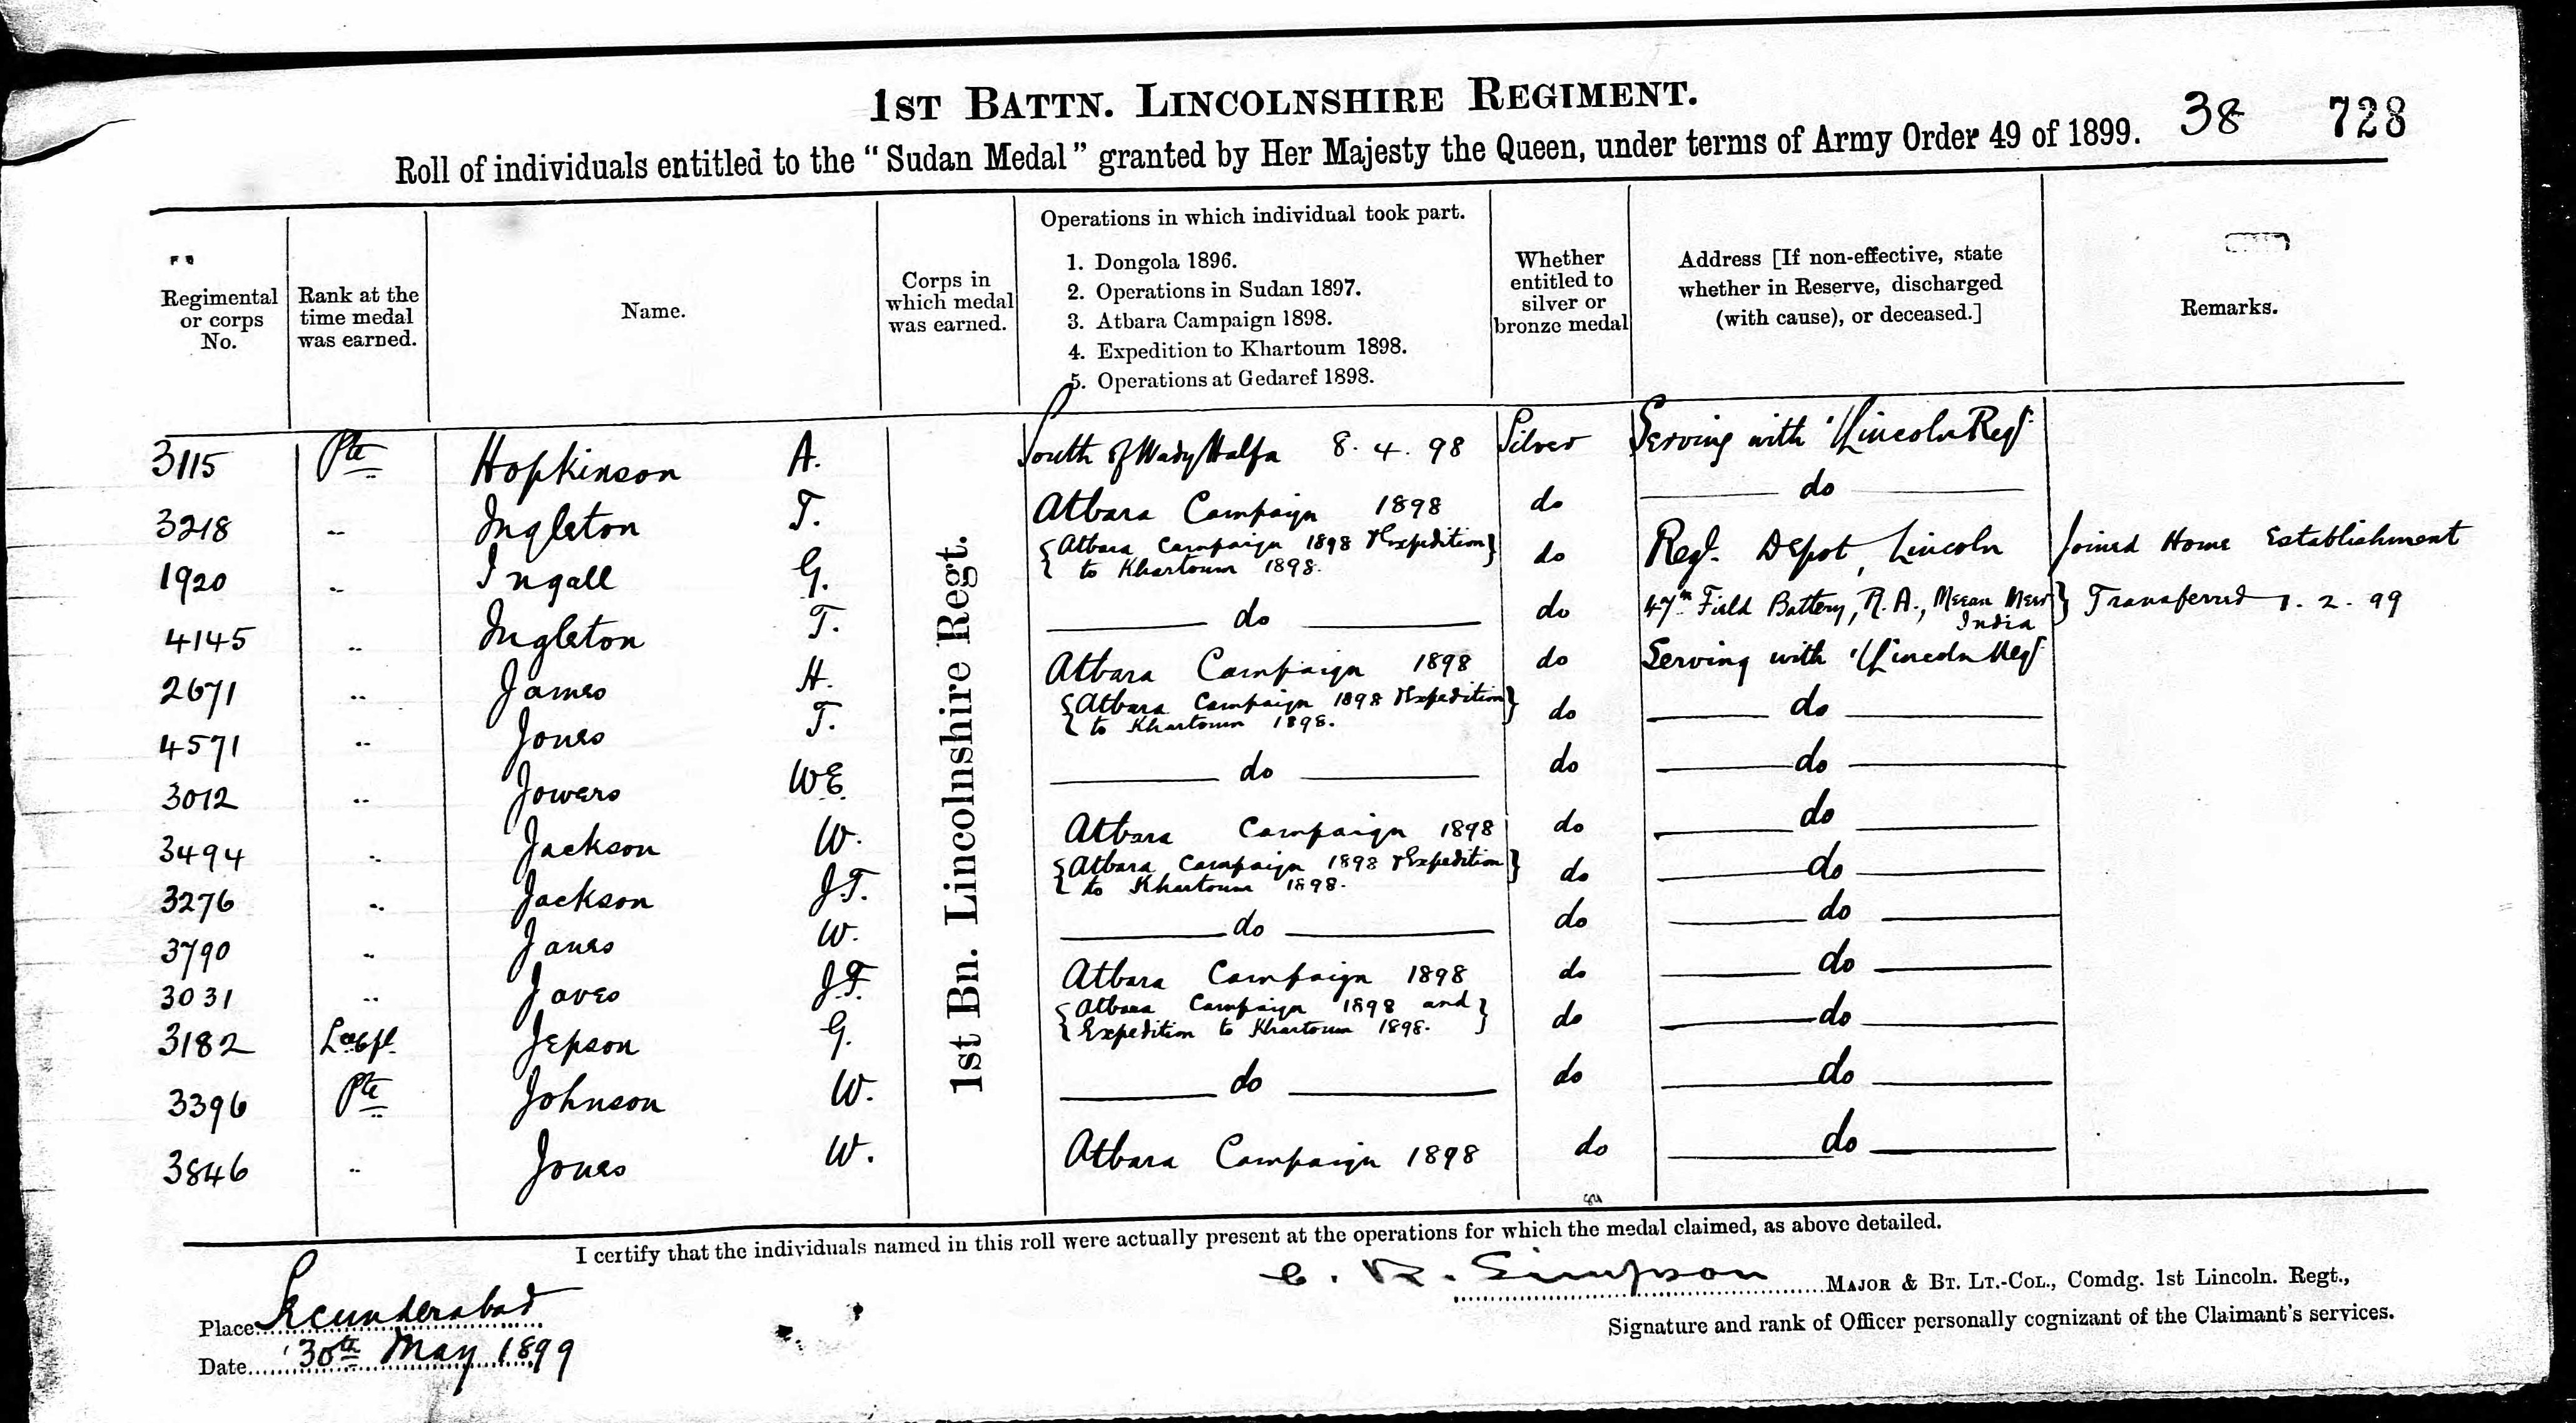 1ST BATTN. LINCOLNSHIRE REGIMENT.
38 728
Roll of individuals entitled to the "Sudan Medal" granted by Her Majesty the Queen, under terms of Army Order 49 of 1899.
Regimental or corps No.
Rank at the time medal was earned.
Name.
Corps in which medal was earned.
Operations in which individual took part.
1. Dongola 1896.
2. Operations in Sudan 1897.
3. Atbara Campaign 1898.
4. Expedition to Khartoum 1898.
5. Operations at Gedaref 1898.
Whether entitled to silver or bronze medal
Address [If non-effective, state whether in Reserve, discharged (with cause), or deceased.]
Remarks.
1st Bn. Lincolnshire Regt.
3115 Pte Hopkinson A. South of Wady Halfa 8. 4. 98 Silver Serving with 1/Lincoln Regt
3218 " Ingleton T. Atbara Campaign 1898 do do
1920 " Ingall G. {Atbara Campaign 1898 & Expedition} do Regt. Depot, Lincoln Joined Home Establishment
to Khartoum 1898.
4145 " Ingleton T. do do 47th Field Battery, R.A., Meean Meer } Transferred 1. 2. 99
India
2671 " James H. Atbara Campaign 1898 do Serving with 1/Lincoln Regt
4571 " Jones T. {Atbara Campaign 1898 & Expedition} do do
to Khartoum 1898.
3012 " Jowers WE. do do do
3494 " Jackson W. Atbara Campaign 1898 do do
3276 " Jackson J.T. {Atbara Campaign 1898 & Expedition} do do
to Khartoum 1898.
3790 " Janes W. do do do
3031 " Javes J.F. Atbara Campaign 1898 do do
3182 Jepson G. {Atbara Campaign 1898 and} do do
Expedition to Khartoum 1898.
3396 Pte Johnson W. do do do
3846 " Jones W. Atbara Campaign 1898 do do
I certify that the individuals named in this roll were actually present at the operations for which the medal claimed, as above detailed.
C. R. Simpson MAJOR & BT. LT.-COL., Comdg. 1st Lincoln. Regt.,
Signature and rank of Officer personally cognizant of the Claimant's services.
Place Secunderabad
Date 30th May 1899